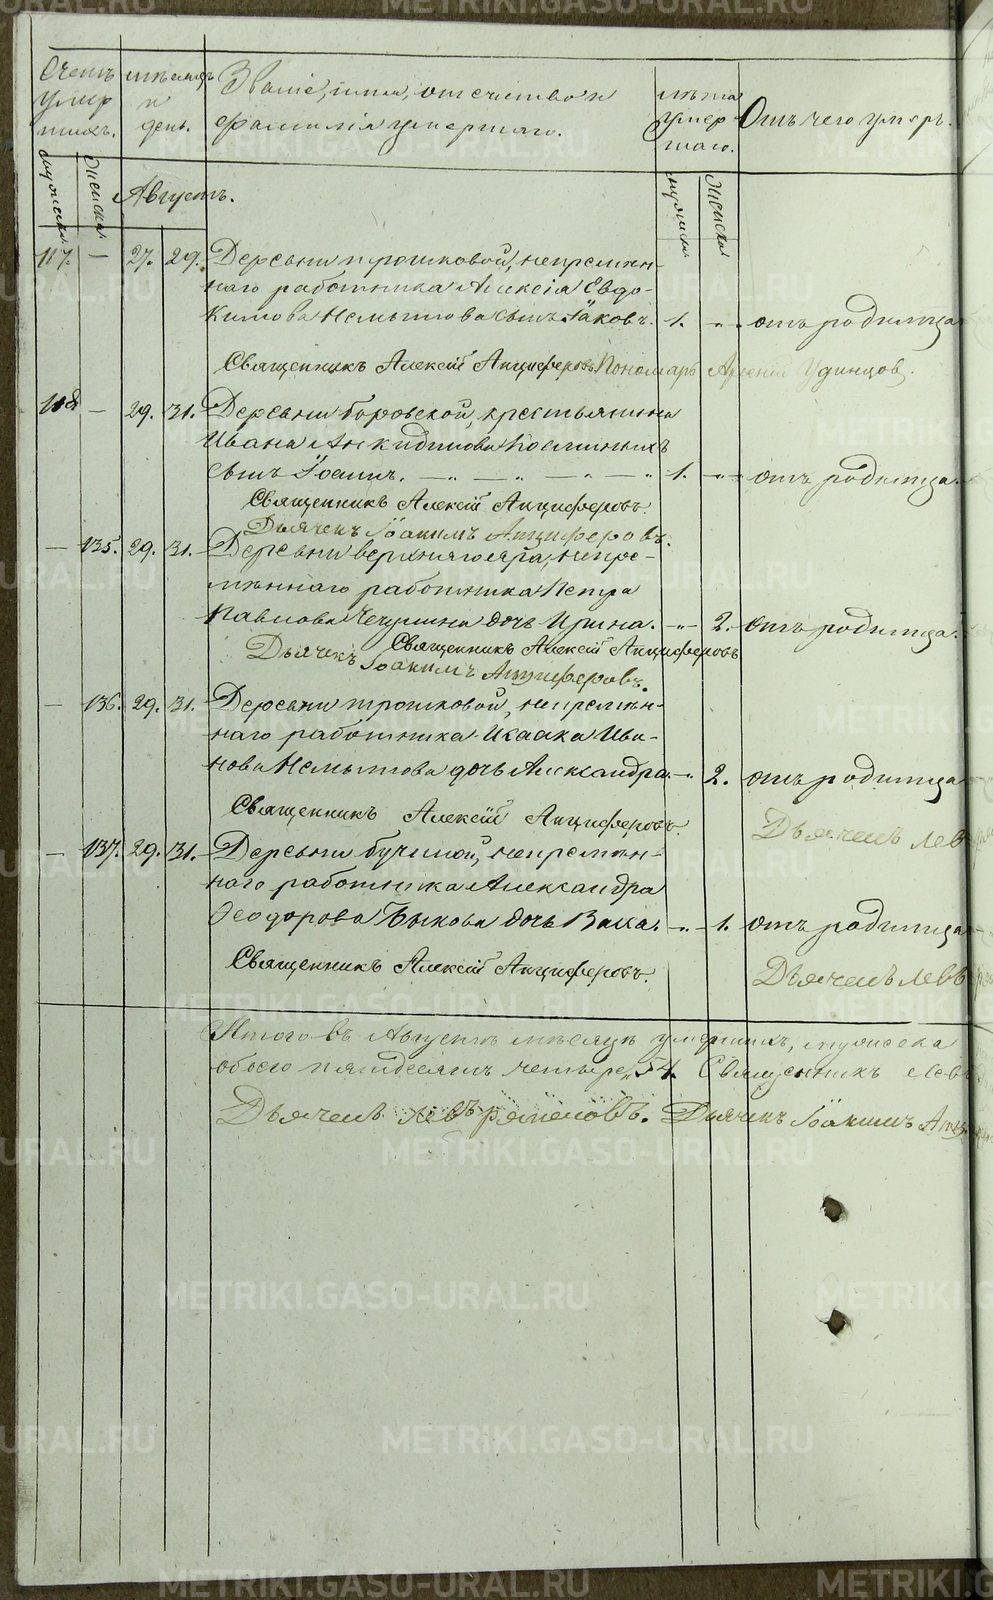 Счетъ умер шихъ.
мѣсяцъ и день.
Званіе, имя, отечество и
фамилія умершаго.
лѣта умер шаго.
Отъ чего умеръ.
мужеска
женска
Августъ.
мужеска
женска
117. — 27. 29. Деревни трошковой, непремѣн-
наго работника Алексія Евдо-
кимова Немытова сынъ Іаковъ. 1. — отъ родимца
Священникъ Алексій Анциферовъ Пономарь Арсеній Удинцов.
118 — 29. 31. Деревни боровской, крестьянина
Ивана
сынъ Іоаннъ. 1. — отъ родимца.
Священникъ Алексій Анциферовъ.
Дьячекъ Іоакимъ Анциферовъ.
— 135. 29. 31. Деревни верхняго яра, непре-
мѣннаго работника Петра
Павлова Чечулина дочь Ирина. — 2. отъ родимца.
Священникъ Алексій Анциферовъ
Дьячекъ Іоакимъ Анциферовъ.
— 136. 29. 31. Деревни трошковой, непремѣн-
наго работника Исаака Ива-
нова Немытова дочь Александра. — 2. отъ родимца
Священникъ Алексій Анциферовъ.
Дьячекъ Лев
— 137. 29. 31. Деревни бучиной, непремѣн-
наго работника Александра
Ѳеодорова Быкова дочь Васса. — 1. отъ родимца
Священникъ Алексій Анциферовъ.
Дьячекъ Левъ
Итого въ Августѣ мѣсяцѣ умершихъ, мужеска
обоего пятдесятъ четыре, 54. Священникъ
Дьячекъ Левъ Дьячекъ Іоакимъ
METRIKI.GASO-URAL.RU